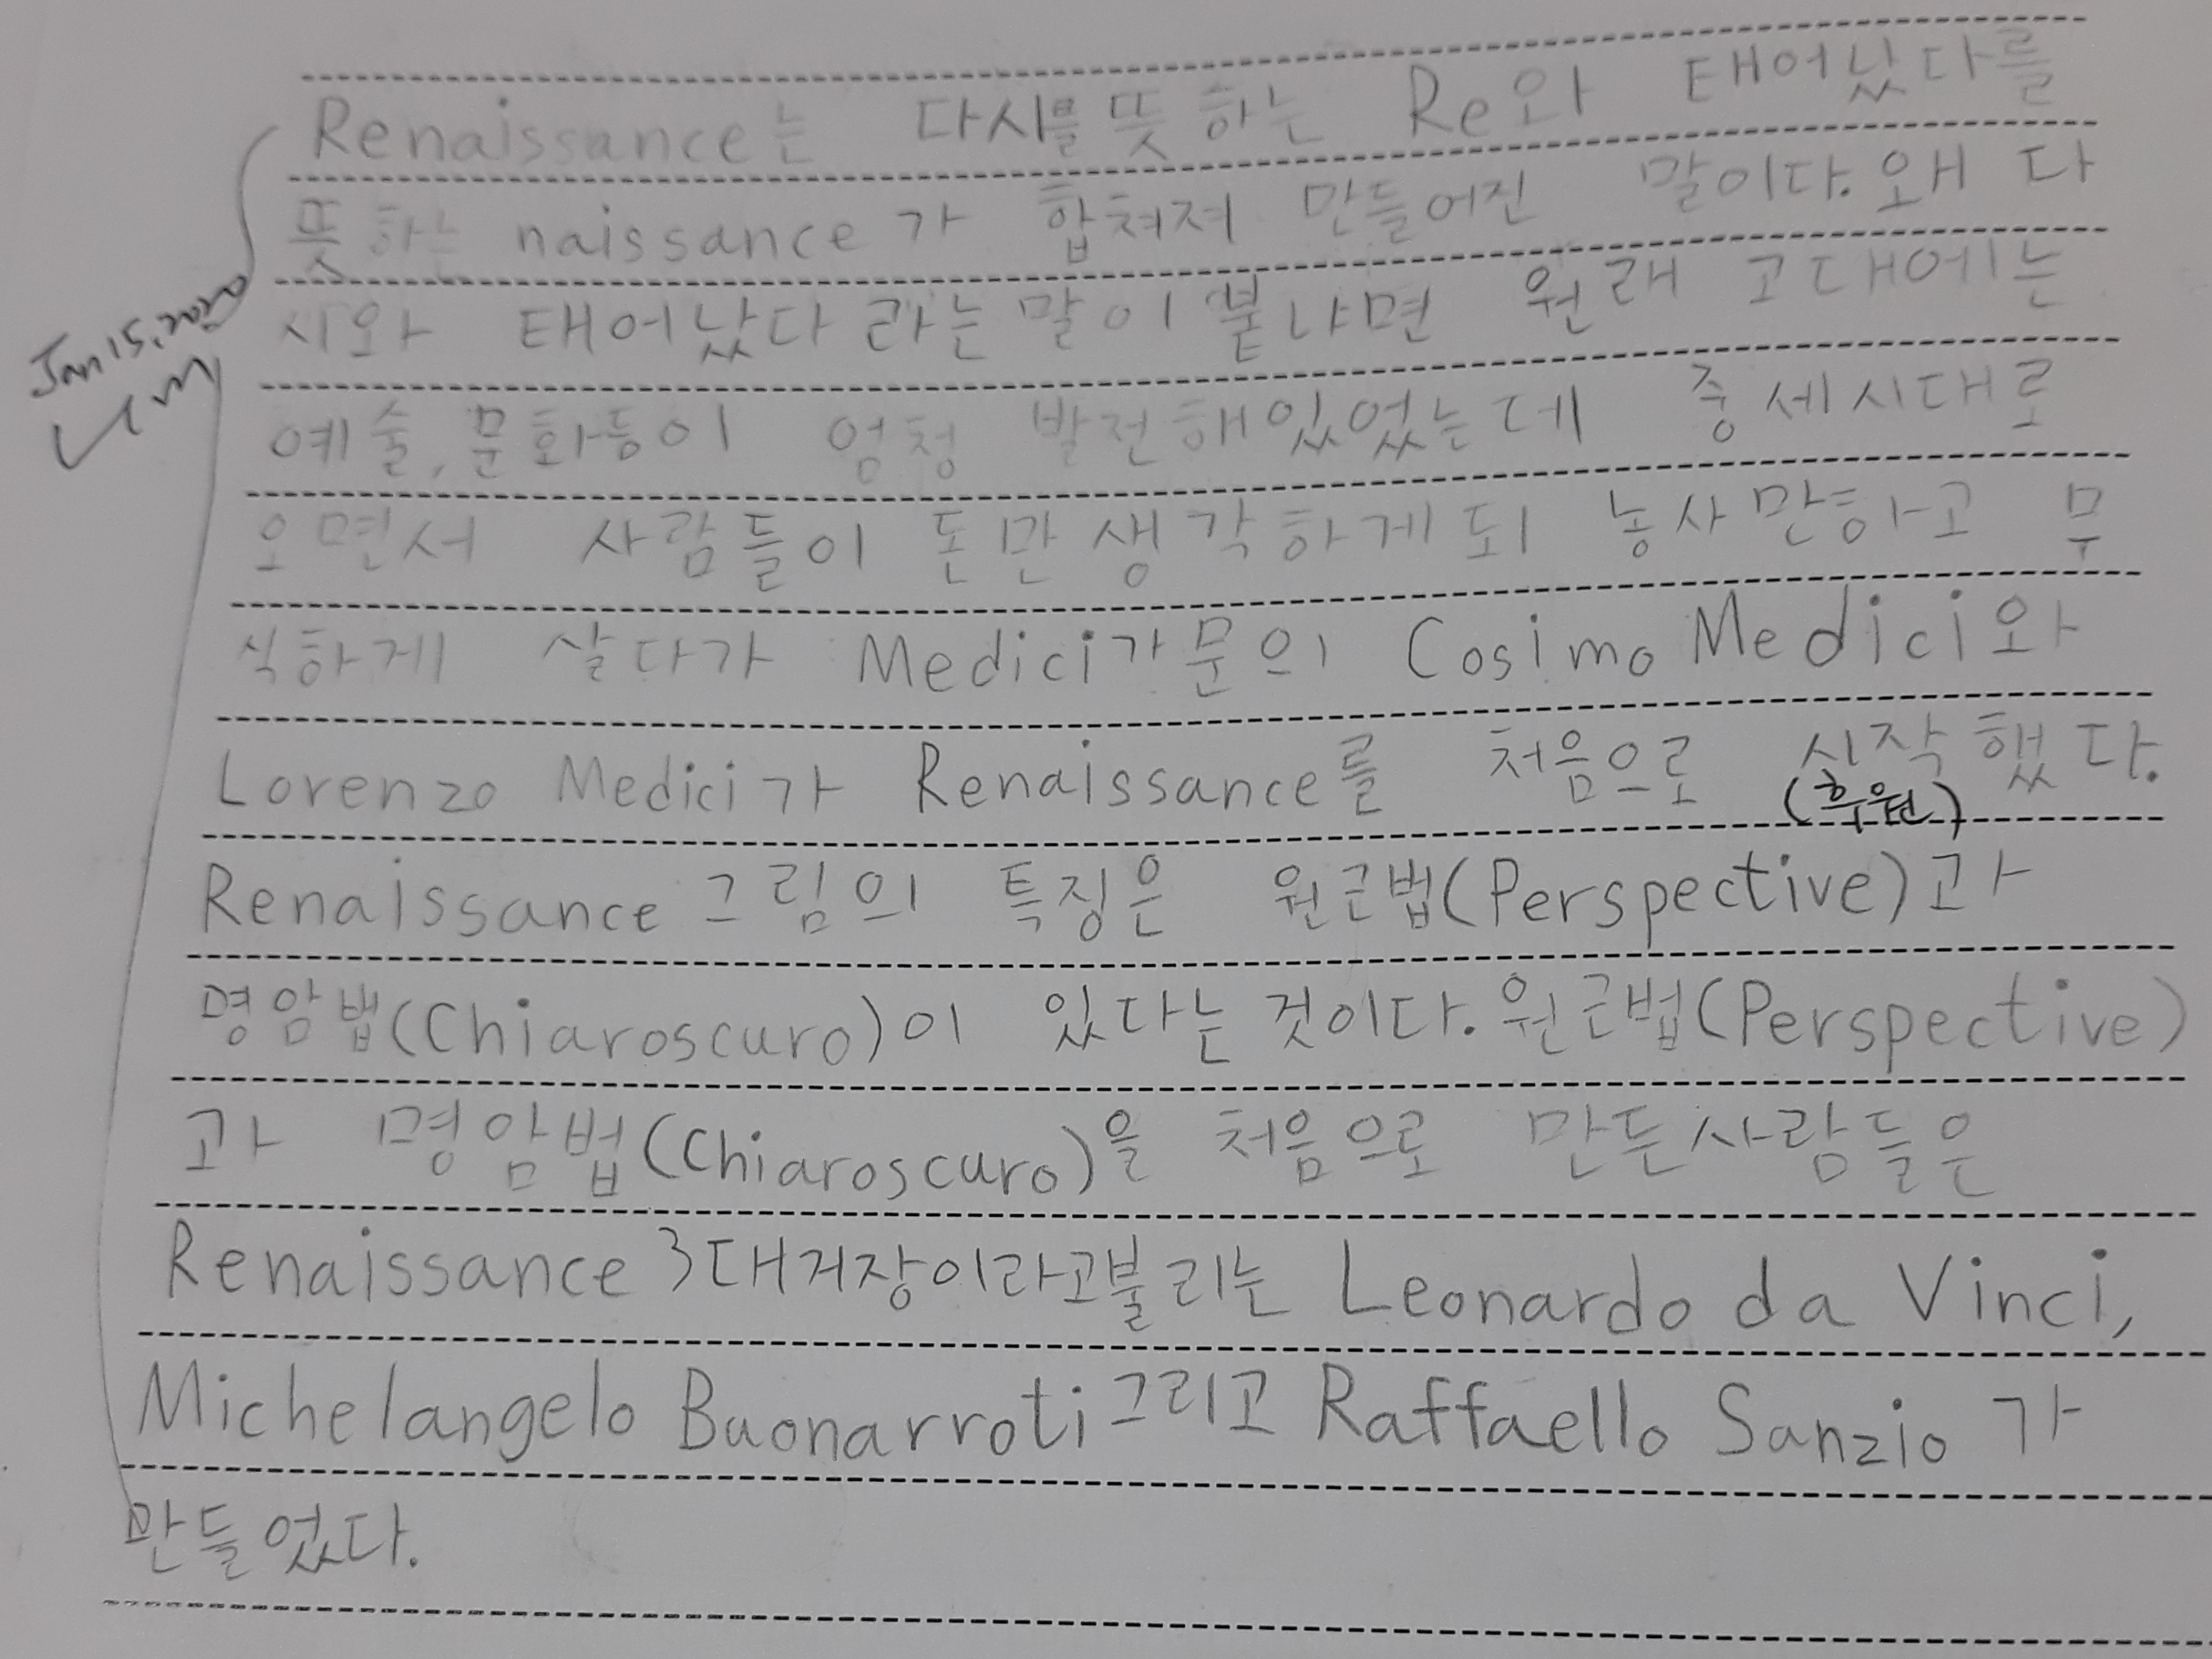 Renaissance는 다시를 뜻하는 Re와 태어났다를
뜻하는 naissance가 합쳐져 만들어진 말이다. 왜 다
시와 태어났다 라는 말이 붙냐면 원래 고대에는
예술, 문화등이 엄청 발전해있었는데 중세시대로
오면서 사람들이 돈만 생각하게 되 농사만하고 무
식하게 살다가 Medici가문의 Cosimo Medici와
Lorenzo Medici가 Renaissance를 처음으로 시작했다.
(후원)
Renaissance 그림의 특징은 원근법(Perspective)과
명암법(Chiaroscuro)이 있다는 것이다. 원근법(Perspective)
과 명암법(Chiaroscuro)을 처음으로 만든사람들은
Renaissance 3대거장이라고불리는 Leonardo da Vinci,
Michelangelo Buonarroti 그리고 Raffaello Sanzio 가
만들었다.
Jan 15,